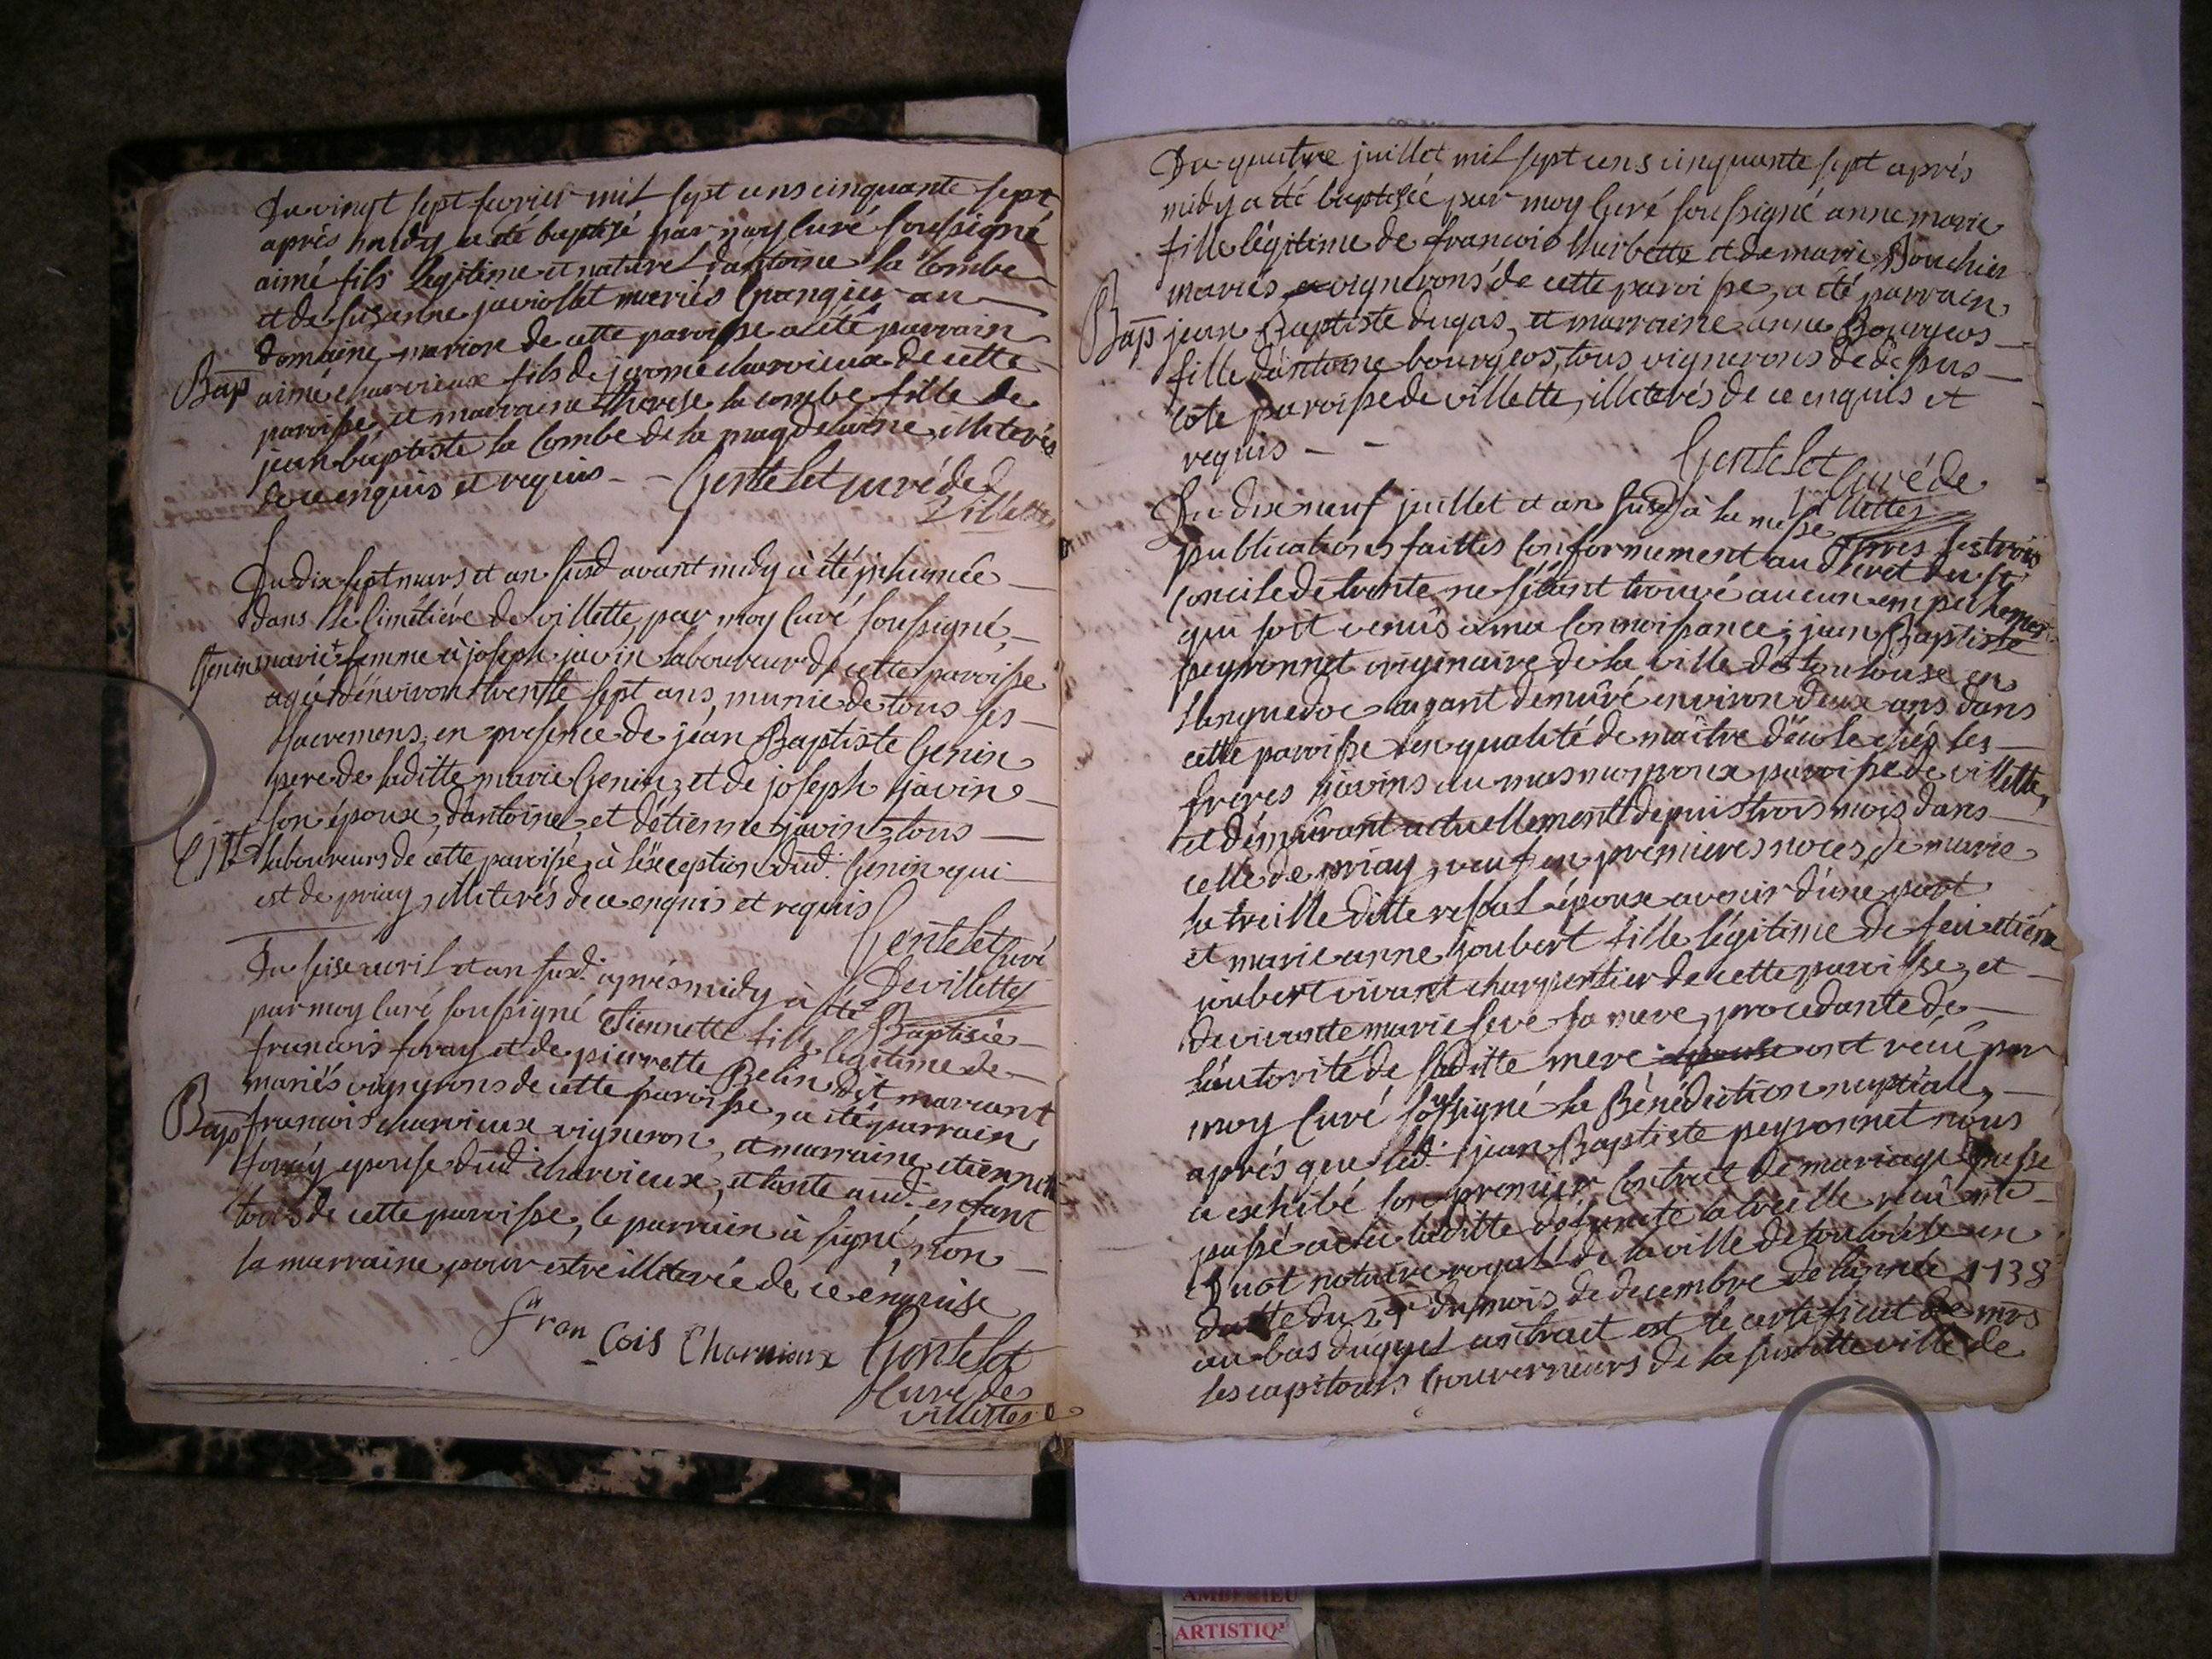 Du vingt sept fevrier mil sept cens cinquante sept
après midy a été baptisé par moy curé soussigné
aimé fils legitime et naturel d'antoine la Combe
et de susanne javiollet mariés Grangier au
domaine marion de cette paroisse a été parrain
Bap aimé charvieux fils de jerome charvieux de cette
paroisse, et marraine therese la combe fille de
jean baptiste la Combe de la magdelaine, illiterés
de ce enquis et requis - - Gentelet curé de
Villettes
Du dix sept mars et an susd avant midy à été inhumée
dans le Cimétiére de villette, par moy Curé soussigné,
Genin marie femme à joseph javin laboureur de cette paroisse
agée d'environ trente sept ans, munie de tous ses
sacremens, en presence de jean Baptiste Genin
pere de laditte marie Genin, et de joseph javin
son époux, d'antoine, et d'étienne javin, tous
laboureurs de cette paroisse, à l'exception dud. Genin qui
est de priay, illiterés de ce enquis et requis
Gentelet Curé
De villettes
Du seise avril et an susd. aprés midy à été Baptisée
par moy Curé soussigné Etiennette fille legitime de
francois foray et de pierrette Belin dit marant
mariés vignerons de cette paroisse, a été parrain
Bap francois charvieux vigneron, et marraine etiennette
foray epouse dud. charvieux, et tante aud. enfant
tous de cette paroisse, le parrain à signé, non
la marraine pour estre illiterée de ce enquise
francois Charvieux Gentelet
Curé des
villettes
Du quatre juillet mil sept cens cinquante sept aprés
midy a été baptisée par moy Curé soussigné anne marie
fille légitime de francois Burbette et de marie Bouchier
mariés vignerons de cette paroisse, a été parrain
Bap jean Baptiste dugas, et marraine anne Bourgeos
fille d'antoine bourgeos, tous vignerons de
cote paroisse de villette, illiterés de ce enquis et
requis - -
Gentelet Curé de
Villettes
Du dix neuf juillet et an susd à la messe après les trois
publications faittes Conformement au decret du st
Concile de trente ne s'étant trouvé aucun empechement
qui soit venûs a ma Connoissance; jean Baptiste
peyronnet originaire de la ville de toulouse en
languedoc ayant demûré environ deux ans dans
cette paroisse en qualité de maître d'école chés les
fréres javins du mas paroisse de villette,
et démûrant actuellement depuis trois mois dans
celle de priay, veuf en premieres noces de marie
la treille ditte époux avenir d'une part
et marie anne joubert fille légitime de feu etiéne
joubert vivant charpentier de cette paroisse, et
de vivante marie seve sa mere, procedante de
l'autorité de laditte mere ont reçû par
moy Curé soussigné la Bénédiction nuptiale,
aprés que led. jean Baptiste peyronnet nous
a exhibé son premier Contract de mariage
passé avec laditte defuncte latreille reçû mte
notaire royal de la ville de toulouse en
datte du 27 du mois de decembre de l'année 1738
au bas duquel contract est le certificat de mrs
les capitouls Gouverneurs de la susditte ville de
AMBERIEU
ARTISTIQ